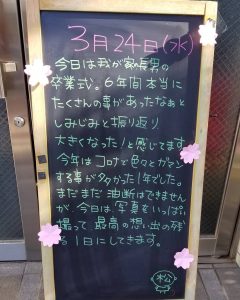 3月24日(水)
今日は我が家長男の
卒業式。6年間本当に
たくさんの事があったなぁと
しみじみと振り返り
大きくなった!と感じてます
今年はコロナで色々とガマン
する事が多かった1年でした。
まだまだ油断はできません
が、今日は写真をいっぱい
撮って最高の想い出の残
る1日にしてきます。
松